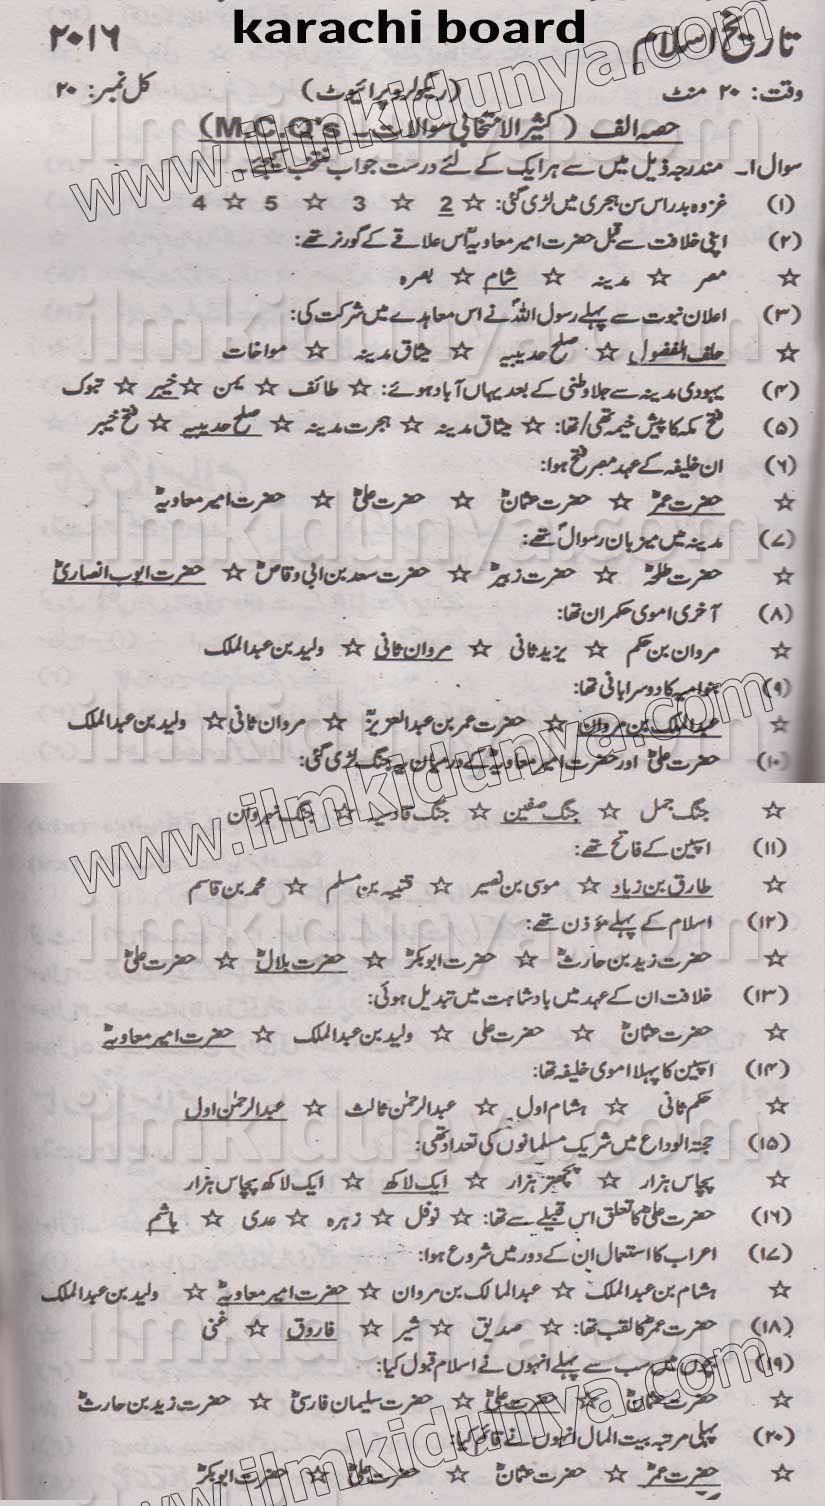 karachi board
تاریخ اسلام ۲۰۱۶
وقت: ۲۰ منٹ (ریگولر و پرائیوٹ) کل نمبر: ۲۰
حصہ الف (کثیر الانتخابی سوالات ۔ M.C.Q's)
سوال ۱۔ مندرجہ ذیل میں سے ہر ایک کے لئے درست جواب منتخب کیجئے۔
(۱) غزوہ بدر اس سن ہجری میں لڑی گئی: ☆ 2 ☆ 3 ☆ 5 ☆ 4
(۲) اپنی خلافت سے قبل حضرت امیر معاویہؓ اس علاقے کے گورنر تھے:
☆ مصر ☆ مدینہ ☆ شام ☆ بصرہ
(۳) اعلان نبوت سے پہلے رسول اللہؐ نے اس معاہدے میں شرکت کی:
☆ حلف الفضول ☆ صلح حدیبیہ ☆ میثاق مدینہ ☆ مواخات
(۴) یہودی مدینہ سے جلا وطنی کے بعد یہاں آباد ہوئے: ☆ طائف ☆ یمن ☆ خیبر ☆ تبوک
(۵) فتح مکہ کا پیش خیمہ تھی/تھا: ☆ میثاق مدینہ ☆ ہجرت مدینہ ☆ صلح حدیبیہ ☆ فتح خیبر
(۶) ان خلیفہ کے عہد مصر فتح ہوا:
☆ حضرت عمرؓ ☆ حضرت عثمانؓ ☆ حضرت علیؓ ☆ حضرت امیر معاویہؓ
(۷) مدینہ میں میزبان رسولؐ تھے:
☆ حضرت طلحہؓ ☆ حضرت زبیرؓ ☆ حضرت سعد بن ابی وقاصؓ ☆ حضرت ایوب انصاریؓ
(۸) آخری اموی حکمران تھا:
☆ مروان بن حکم ☆ یزید ثانی ☆ مروان ثانی ☆ ولید بن عبدالملک
(۹) بنو امیہ کا دوسرا بانی تھا:
☆ عبدالملک بن مروان ☆ حضرت عمر بن عبدالعزیزؒ ☆ مروان ثانی ☆ ولید بن عبدالملک
(۱۰) حضرت علیؓ اور حضرت امیر معاویہؓ کے درمیان یہ جنگ لڑی گئی:
☆ جنگ جمل ☆ جنگ صفین ☆ جنگ قادسیہ ☆ جنگ نہروان
(۱۱) اسپین کے فاتح تھے:
☆ طارق بن زیاد ☆ موسی بن نصیر ☆ قتیبہ بن مسلم ☆ محمد بن قاسم
(۱۲) اسلام کے پہلے مؤذن تھے:
☆ حضرت زید بن حارثؓ ☆ حضرت ابوبکرؓ ☆ حضرت بلالؓ ☆ حضرت علیؓ
(۱۳) خلافت ان کے عہد میں بادشاہت میں تبدیل ہوئی:
☆ حضرت عثمانؓ ☆ حضرت علی ☆ ولید بن عبدالملک ☆ حضرت امیر معاویہؓ
(۱۴) اسپین کا پہلا اموی خلیفہ تھا:
☆ حکم ثانی ☆ ہشام اول ☆ عبدالرحمٰن ثالث ☆ عبدالرحمٰن اول
(۱۵) حجتہ الوداع میں شریک مسلمانوں کی تعداد تھی:
☆ پچاس ہزار ☆ پچھتر ہزار ☆ ایک لاکھ ☆ ایک لاکھ پچاس ہزار
(۱۶) حضرت علیؓ کا تعلق اس قبیلے سے تھا: ☆ نوفل ☆ زہرہ ☆ عدی ☆ ہاشم
(۱۷) اعراب کا استعمال ان کے دور میں شروع ہوا:
☆ ہشام بن عبدالملک ☆ عبدالمالک بن مروان ☆ حضرت امیر معاویہؓ ☆ ولید بن عبدالملک
(۱۸) حضرت عمرؓ کا لقب تھا: ☆ صدیق ☆ شیر ☆ فاروق ☆ غنی
(۱۹) بچوں میں سب سے پہلے انہوں نے اسلام قبول کیا:
☆ حضرت عثمانؓ ☆ حضرت علیؓ ☆ حضرت سلیمان فارسیؓ ☆ حضرت زید بن حارثؓ
(۲۰) پہلی مرتبہ بیت المال انہوں نے قائم کیا:
☆ حضرت عمرؓ ☆ حضرت عثمانؓ ☆ حضرت علیؓ ☆ حضرت ابوبکرؓ
www.ilmkidunya.com
ilmkidunya.com